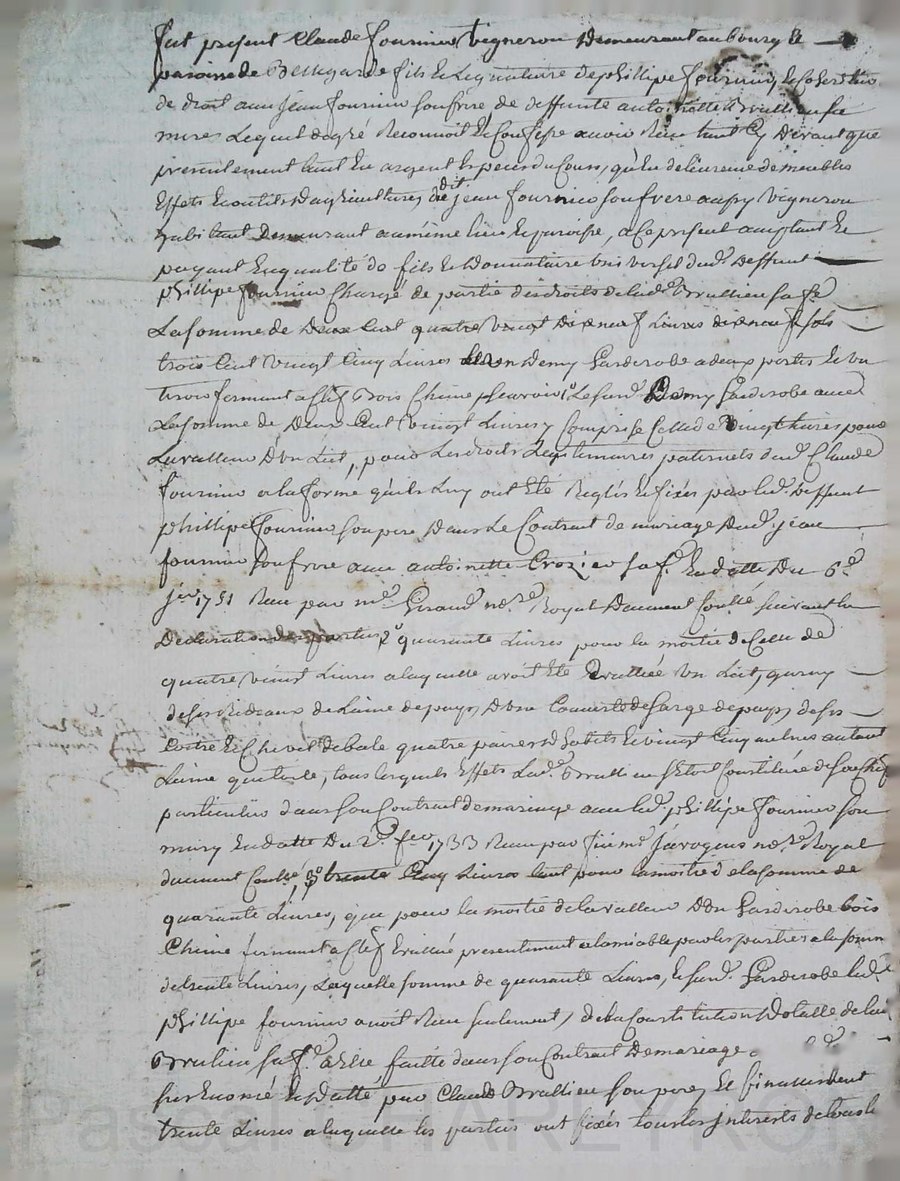 fut present Claude fournier vigneron demeurant au bourg et
paroisse de Bellegarde fils et legataire de phillipe fournier, et coheritier
de droit avec jean fournier son frere de deffunte antoinette Brullieu sa
mere, Lequel de gré Reconnoit et Confesse avoir Reçu tant Cy devant que
presentement tant en argent especes du Cours, qu'en delivrance de meubles
Effets et outils d'agriculture, dudit jean fournier son frere aussy vigneron
habitant demeurant au meme lieu et paroisse, a Ce present acceptant et
payant En qualité de fils et Donnataire universel dud. deffunt
phillipe fournier Chargé de partie des droits de lad. Brullieu sa fe.
La somme de deux Cent quatre vingt dix neuf Livres dix neuf sols
trois Cent vingt Cinq Livres et un demy Garderobe a deux portes et un
tiroir fermant a Clef Bois Chene Le sud. demy Garderobe avec
La somme de deux Cent vingt Livres y Comprise Celle de vingt Livres pour
La valleur d'un Lit, pour Les droits Legitimaires paternels dud. Claude
fournier a la forme qu'ils Luy ont Eté Reglés et fixés par led. deffunt
phillipe fournier son pere dans Le Contrat de mariage dud. jean
fournier son frere avec antoinette Crozier sa fe. En datte du 6e.
jer. 1751 Reçu par me. Giraud no.re Royal duement Conllé suivant la
declaration des parties, 2o quarante Livres pour la moitié de Celle de
quatre vingt Livres a laquelle avoit Eté Evalluée un Lit, garny
de ses Rideaux de Laine de pays, d'une Couverte de sarge de pays, de ses
Coetre et Chevet de bale quatre paires d'habits et vingt Cinq aulnes autant
Laine que toile, tous lesquels Effets Lad. Brullieu s'Etoit Constituée de son Chef
particulier dans son Contrat de mariage avec led. phillipe fournier son
mary En datte du 2e. fev. 1733 Reçu par feu me. jaroqus no.re Royal
duement Conllé, 3o trente Cinq Livres tant pour la moitié de la somme de
quarante Livres, que pour la moitié de la valleur d'un Garderobe bois
Chene fermant a Clef Evalué presentement a l'amiable par les parties a la somme
de trente Livres, Laquelle somme de quarante Livres, et sud. Garderobe led.
phillipe fournier avoit Reçu seulement, de la Constitution Dotalle de lad.
Brullieu sa fe. a Elle faitte dans son Contrat de mariage
sus Enoncé et datté par Claude Brullieu son pere, Et finallement
trente Livres a laquelle les parties ont fixés tous les jnterets de tous les
Pascal CHAREYRON